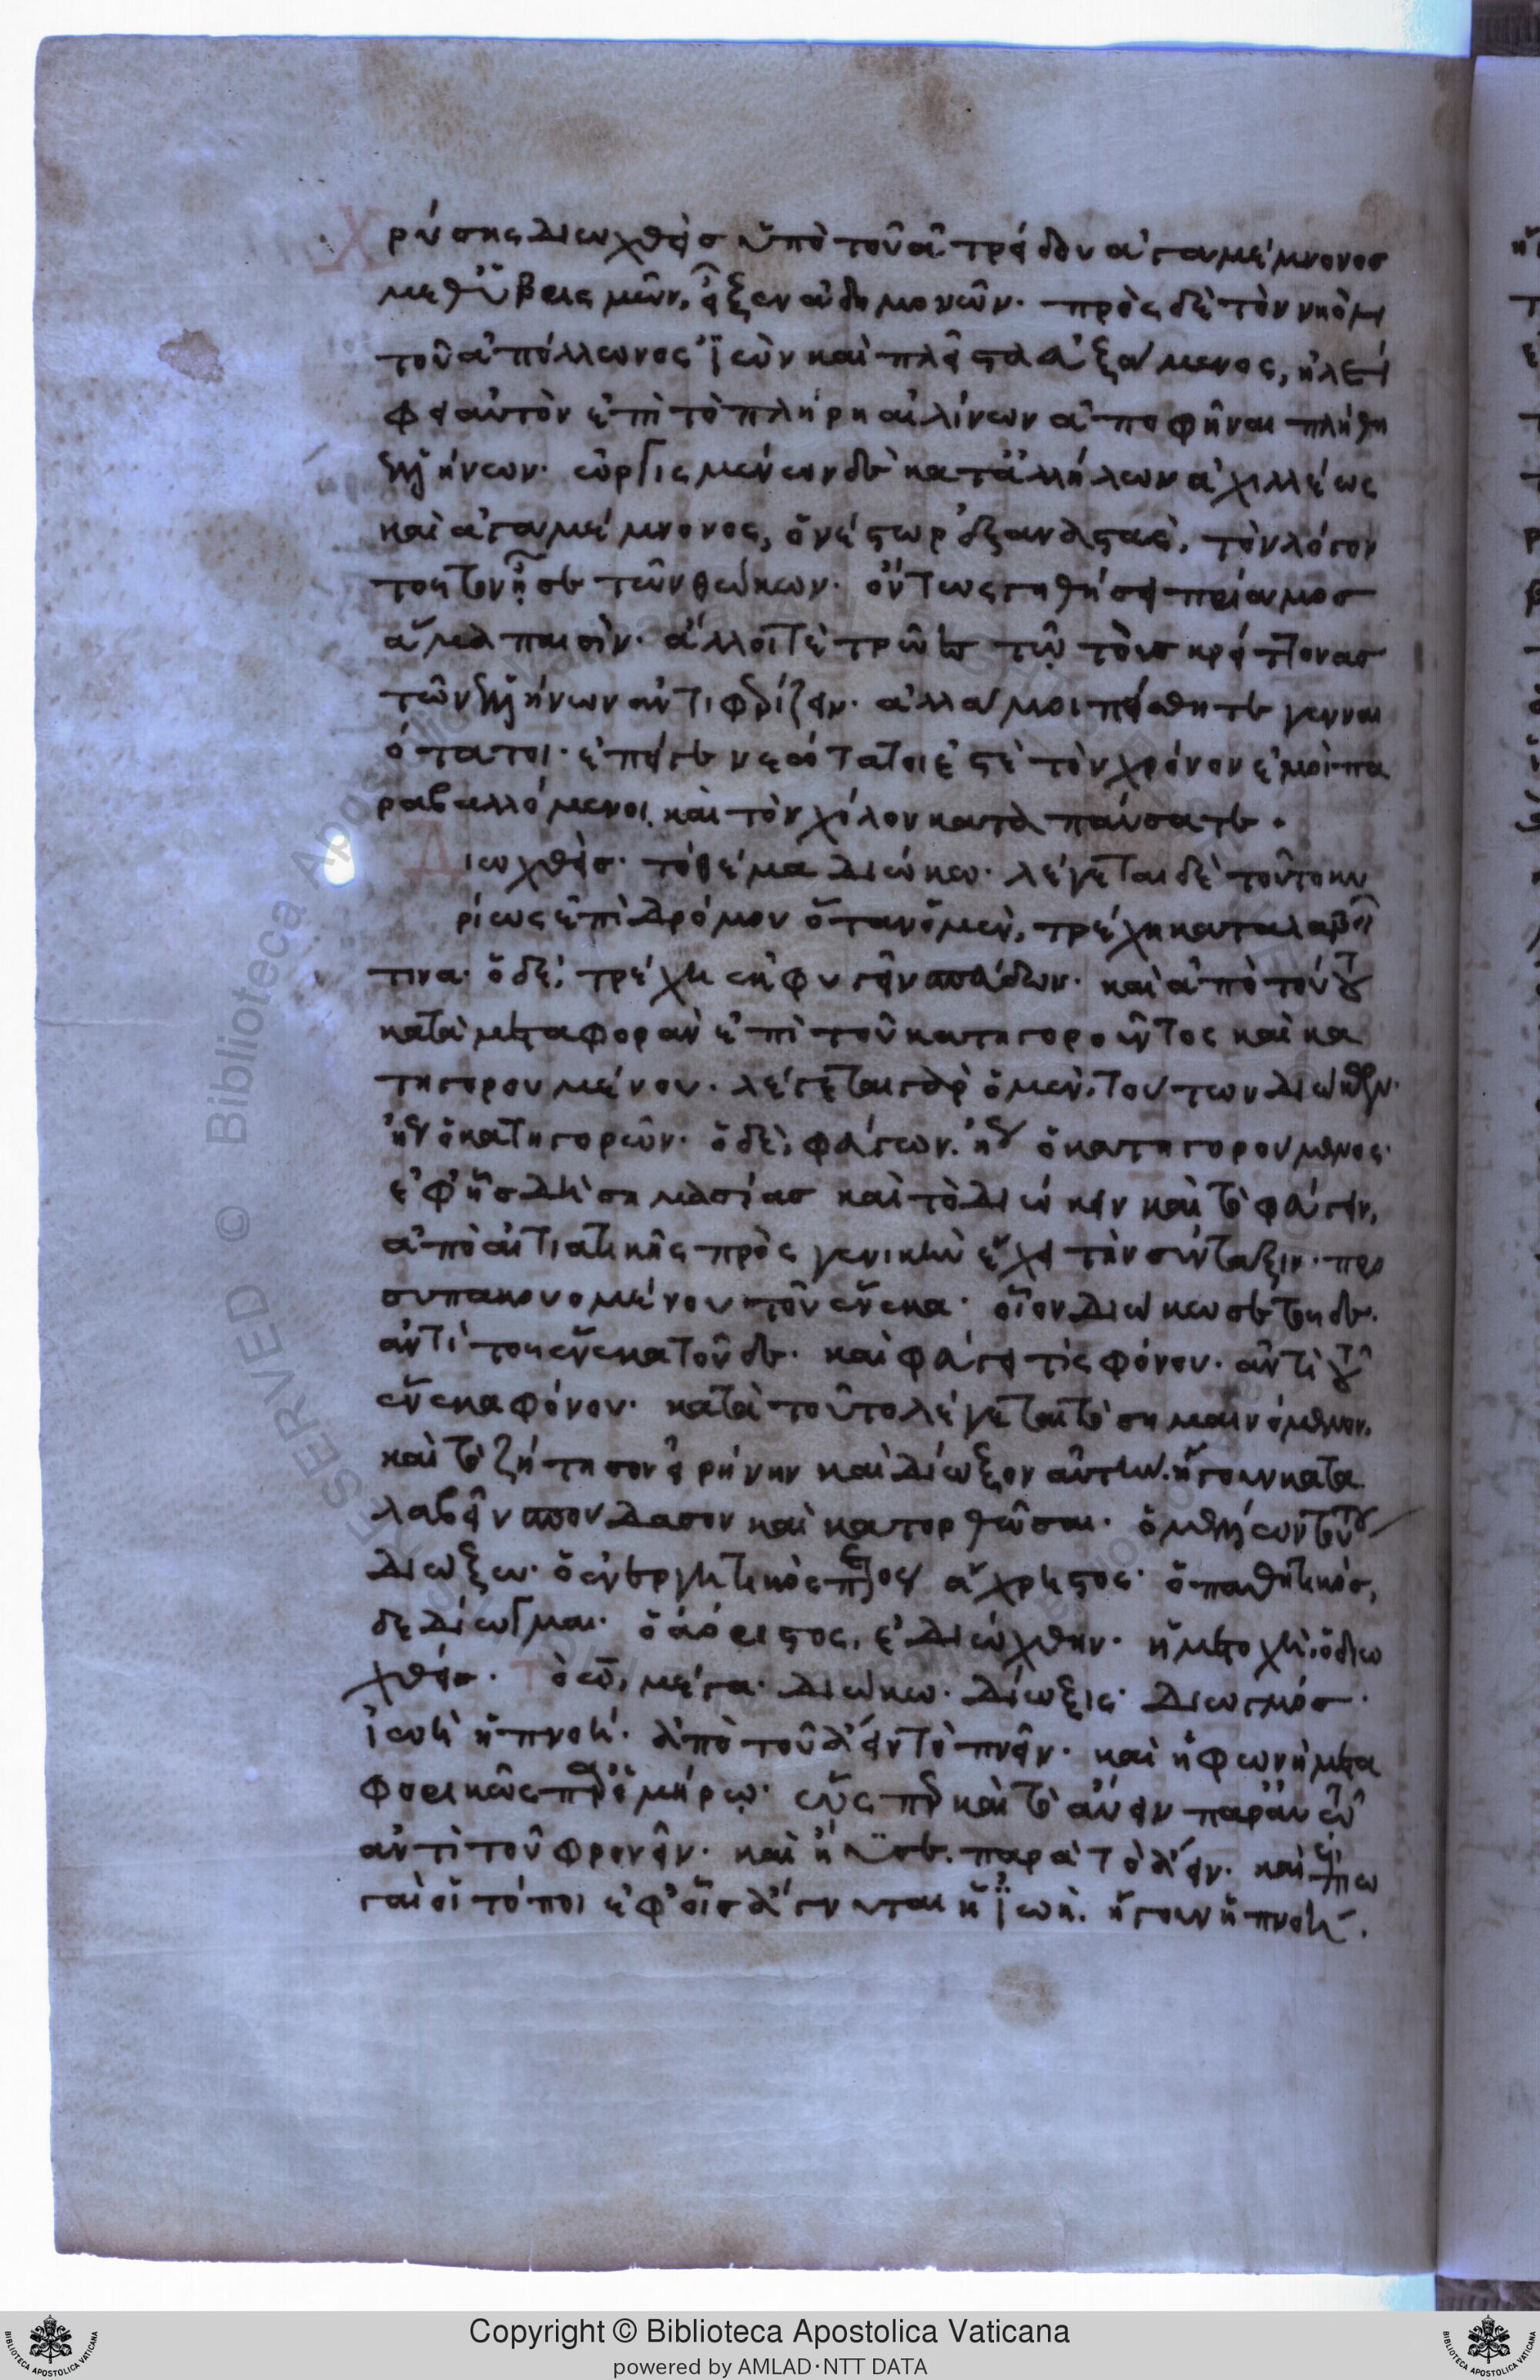 Χρύσης διωχθεὶς ὑπὸ τοῦ ἀτρείδου ἀγαμέμνονος
μεθ' ὕβρεως μὲν, ἧξεν ἀδημονῶν· πρὸς δὲ τὸν νηὸν
τοῦ ἀπόλλωνος ἰὼν καὶ πλεῖστα ἀξάμενος,
αὐτὸν ἐπὶ τὸ πλήρη αἰλίνων ἀποφῆναι πλήθη
ἑλλήνων· κατ' ἀλλήλων ἀχιλλέως
καὶ ἀγαμέμνονος, ὁ νέστωρ ἐξαναστὰς, τὸν λόγον
τῶν θώκων· ὄντως γηθήσει πρίαμος
ἅμα παισὶν· ἄλλοι τε τρῶες τῷ τοὺς κρείττονας
τῶν ἑλλήνων ἀντιφερίζειν· ἀλλά μοι πείσθητε γενναι
ότατοι· ἐπεί γε νεώτατοί ἐστε τὸν χρόνον ἐμοὶ πα
ραβαλλόμενοι, καὶ τὸν χόλον καταπαύσατε.
Διωχθείς· τὸ θέμα διώκω· λέγεται δὲ τοῦτο κυ
ρίως ἐπὶ δρόμου ὅταν ὁ μὲν, τρέχῃ καταλαβεῖν
τινα· ὁ δὲ, τρέχῃ ἐκφυγεῖν σπεύδων· καὶ ἀπὸ τούτου
κατὰ μεταφορὰν ἐπὶ τοῦ κατηγοροῦντος καὶ κα
τηγορουμένου· λέγεται γὰρ ὁ μὲν, τουτων διώκειν·
ἤγουν ὁ κατηγορῶν· ὁ δὲ, φεύγων· ἤγουν ὁ κατηγορούμενος·
ἐφ' ἧς δὴ σημασίας καὶ τὸ διώκειν καὶ τὸ φεύγειν,
ἀπὸ αἰτιατικῆς πρὸς γενικὴν ἔχει τὴν σύνταξιν· προ
συπακουομένου τοῦ ἕνεκα· οἷον διώκω σε τοῦδε.
ἀντὶ τοῦ ἕνεκα τοῦδε· καὶ φεύγει τίς φόνου· ἀντὶ τοῦ
ἕνεκα φόνου· κατὰ τοῦτο λέγεται τὸ σημαινόμενον,
καὶ τὸ ζήτησον εἰρήνην καὶ δίωξον αὐτήν· ἤγουν κατα
λαβεῖν σπούδασον καὶ κατορθῶσαι· ὁ μέλλων τούτου
διώξω· ὁ ἐνεργητικὸς παρακείμενος ἄχρηστος· ὁ παθητικὸς,
δεδίωγμαι· ὁ ἀόριστος, ἐδιώχθην· ἡ μετοχὴ, ὁ διω
χθείς· Τὸ ω, μέγα· διώκω· δίωξις· διωγμός·
ἰωὴ ἡ πνοή· ἀπὸ τοῦ ἄειν τὸ πνεῖν· καὶ ἡ φωνὴ μετα
φορικῶς παρ' ὁμήρῳ· καὶ τὸ αὔειν παρ' αὐτῷ
ἀντὶ τοῦ φωνεῖν· καὶ ἤυσε. παρὰ τὸ ἄειν· καὶ ἰω
γαὶ οἱ τόποι ἐφ' οἷς ἄγνυται ἡ ἰωὴ. ἤγουν ἡ πνοή.